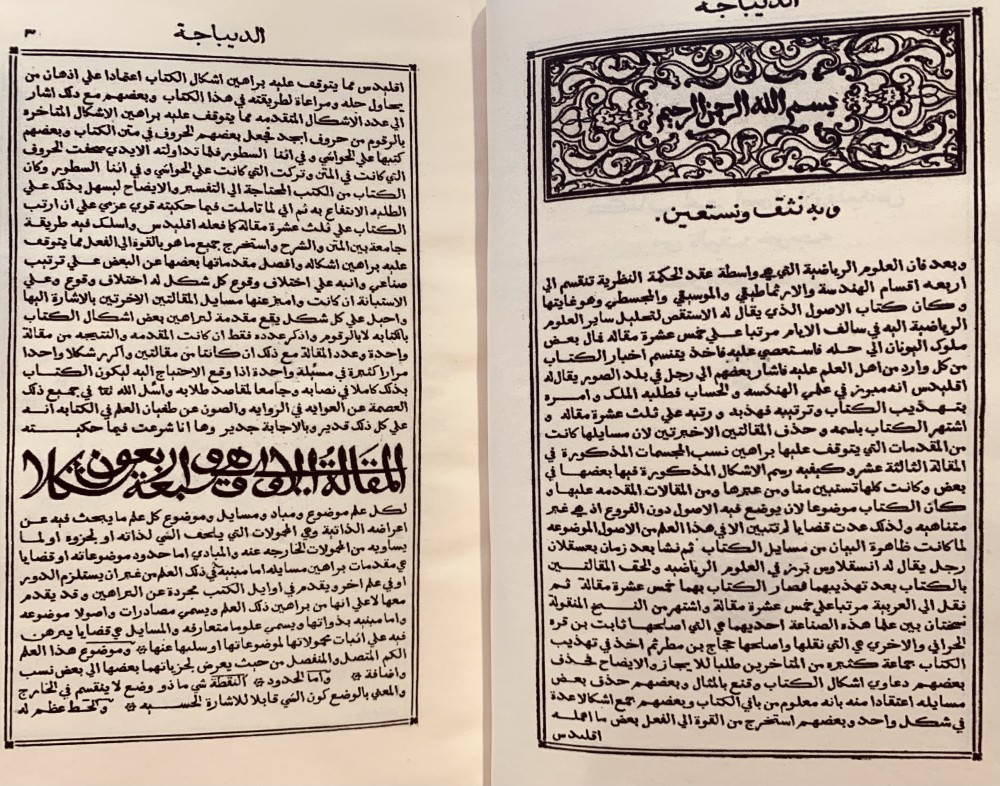 الديباجة
بسم الله الرحمن الرحيم
وبه نثق ونستعين.
وبعد فان العلوم الرياضية التي هي واسطة عقد الحكمة النظرية تنقسم الي
اربعه اقسام الهندسة والارثماطيقي والموسيقي والمجسطي وهو غايتها
وكان كتاب الاصول الذي يقال له الاستقص لتحليل ساير العلوم
الرياضية اليه في سالف الايام مرتبا علي خمس عشرة مقالة فمال بعض
ملوك اليونان الي حله فاستعصي عليه فاخذ يتقسم اخبار الكتاب
من كل وارد من اهل العلم عليه فاشار بعضهم الي رجل في بلد الصور يقال له
اقليدس انه مبرز في علمي الهندسه والحساب فطلبه الملك وامره
بتهذيب الكتاب وترتيبه فهذبه ورتبه علي ثلث عشرة مقالة و
اشتهر الكتاب باسمه وحذف المقالتين الاخيرتين لان مسايلها كانت
من المقدمات التي يتوقف عليها براهين نسب المجسمات المذكورة في
المقالة الثالثة عشر وكيفيه رسم الاشكال المذكورة فيها بعضها في
بعض وكانت كلها تستبين منا ومن غيرها ومن المقالات المقدمه عليها و
كان الكتاب موضوعا لان يوضع فيه الاصول دون الفروع اذ هي غير
متناهيه ولذلك عدت قضايا لم تتبين الا في هذا العلم من الاصول الموضوعه
لما كانت ظاهرة البيان من مسايل الكتاب ثم نشا بعد زمان بعسقلان
رجل يقال له انسقلاوس تبرز في العلوم الرياضيه والحق المقالتين
بالكتاب بعد تهذيبهما فصار الكتاب بهما خمس عشرة مقالة ثم
نقل الي العربية مرتبا علي خمس عشرة مقالة واشتهر من النسخ المنقولة
نسختان بين علما هذه الصناعة احديهما هي التي اصلحها ثابت بن قره
الحراني والاخري هي التي نقلها واصلحها حجاج بن مطر ثم اخذ في تهذيب
الكتاب جماعة كثيره من المتاخرين طلبا للايجاز والايضاح فحذف
بعضهم دعاوي اشكال الكتاب وقنع بالمثال وبعضهم حذف بعض
مسايله اعتقادا منه بانه معلوم من باقي الكتاب وبعضهم جمع اشكالا عدة
في شكل واحد وبعضهم استخرج من القوة الي الفعل بعض ما اهمله
اقليدس
الديباجة ٣
اقليدس مما يتوقف عليه براهين اشكال الكتاب اعتمادا علي اذهان من
يحاول حله ومراعاة لطريقته في هذا الكتاب وبعضهم مع ذلك اشار
الي عدد الاشكال المتقدمه مما يتوقف عليه براهين الاشكال المتاخره
بالرقوم من حروف ابجد فجعل بعضهم الحروف في متن الكتاب وبعضهم
كتبها علي الحواشي وفي اثنا السطور فلما تداولته الايدي سحفت الحروف
التي كانت في المتن وتركت التي كانت علي الحواشي وفي اثنا السطور وكان
الكتاب من الكتب المحتاجة الي التفسير والايضاح ليسهل بذلك علي
الطلبه الانتفاع به ثم اني لما تاملت فيما حكيته قوي عزمي علي ان ارتب
الكتاب علي ثلث عشرة مقالة كما فعله اقليدس واسلك فيه طريقة
جامعة بين المتن والشرح واستخرج جميع ما هو بالقوة الي الفعل مما يتوقف
عليه براهين اشكاله وافصل مقدماتها بعضها عن البعض علي ترتيب
صناعي وانبه علي اختلاف وقوع كل شكل له اختلاف وقوع وعلي
الاستبانة ان كانت واميز عنها مسايل المقالتين الاخرتين بالاشارة اليها
واحيل علي كل شكل يقع مقدمة لبراهين بعض اشكال الكتاب
بالكتابه لا بالرقوم واذكر عدده فقط ان كانت المقدمه والنتيجه من مقالة
واحدة وعدد المقالة مع ذلك ان كانتا من مقالتين واكرر شكلا واحدا
مرارا كثيرة في مسيلة واحدة اذا وقع الاحتياج اليه ليكون الكتاب
بذلك كاملا في نصابه وجامعا لمقاصد طلابه واسل الله تعا في جميع ذلك
العصمة عن الغوايه في الروايه والصون عن طغيان العلم في الكتابه انه
علي كل ذلك قدير وبالاجابة جدير وها انا شرعت فيما حكيته
المقالة الاولي وهي سبعة واربعون شكلا
لكل علم موضوع ومباد ومسايل وموضوع كل علم ما يبحث فيه عن
اعراضه الذاتية وهي المحمولات التي يلحف الشي لذاته او لجزوه او لما
يساويه من المحمولات الخارجه عنه والمبادي اما حدود موضوعاته او قضايا
هي مقدمات براهين مسايله اما مبينة في ذلك العلم من غير ان يستلزم الدور
او في علم اخر ويقدم في اوايل الكتب مجردة عن البراهين وقد يقدم
معها لا علي انها من براهين ذلك العلم ويسمي مصادرات واصولا موضوعه
واما مبينه بذواتها ويسمي علوما متعارفه والمسايل هي قضايا يبرهن
فيه علي اثبات محمولاتها لموضوعاتها او سلبها عنها وموضوع هذا العلم
الكم المتصل والمنفصل من حيث يعرض لجزياتهما بعضها الي بعض نسب
واضافة واما الحدود النقطة شي ما ذو وضع لا ينقسم في الخارج
والمعني بالوضع كون الشي قابلا للاشارة الحسيه والخط عظم له